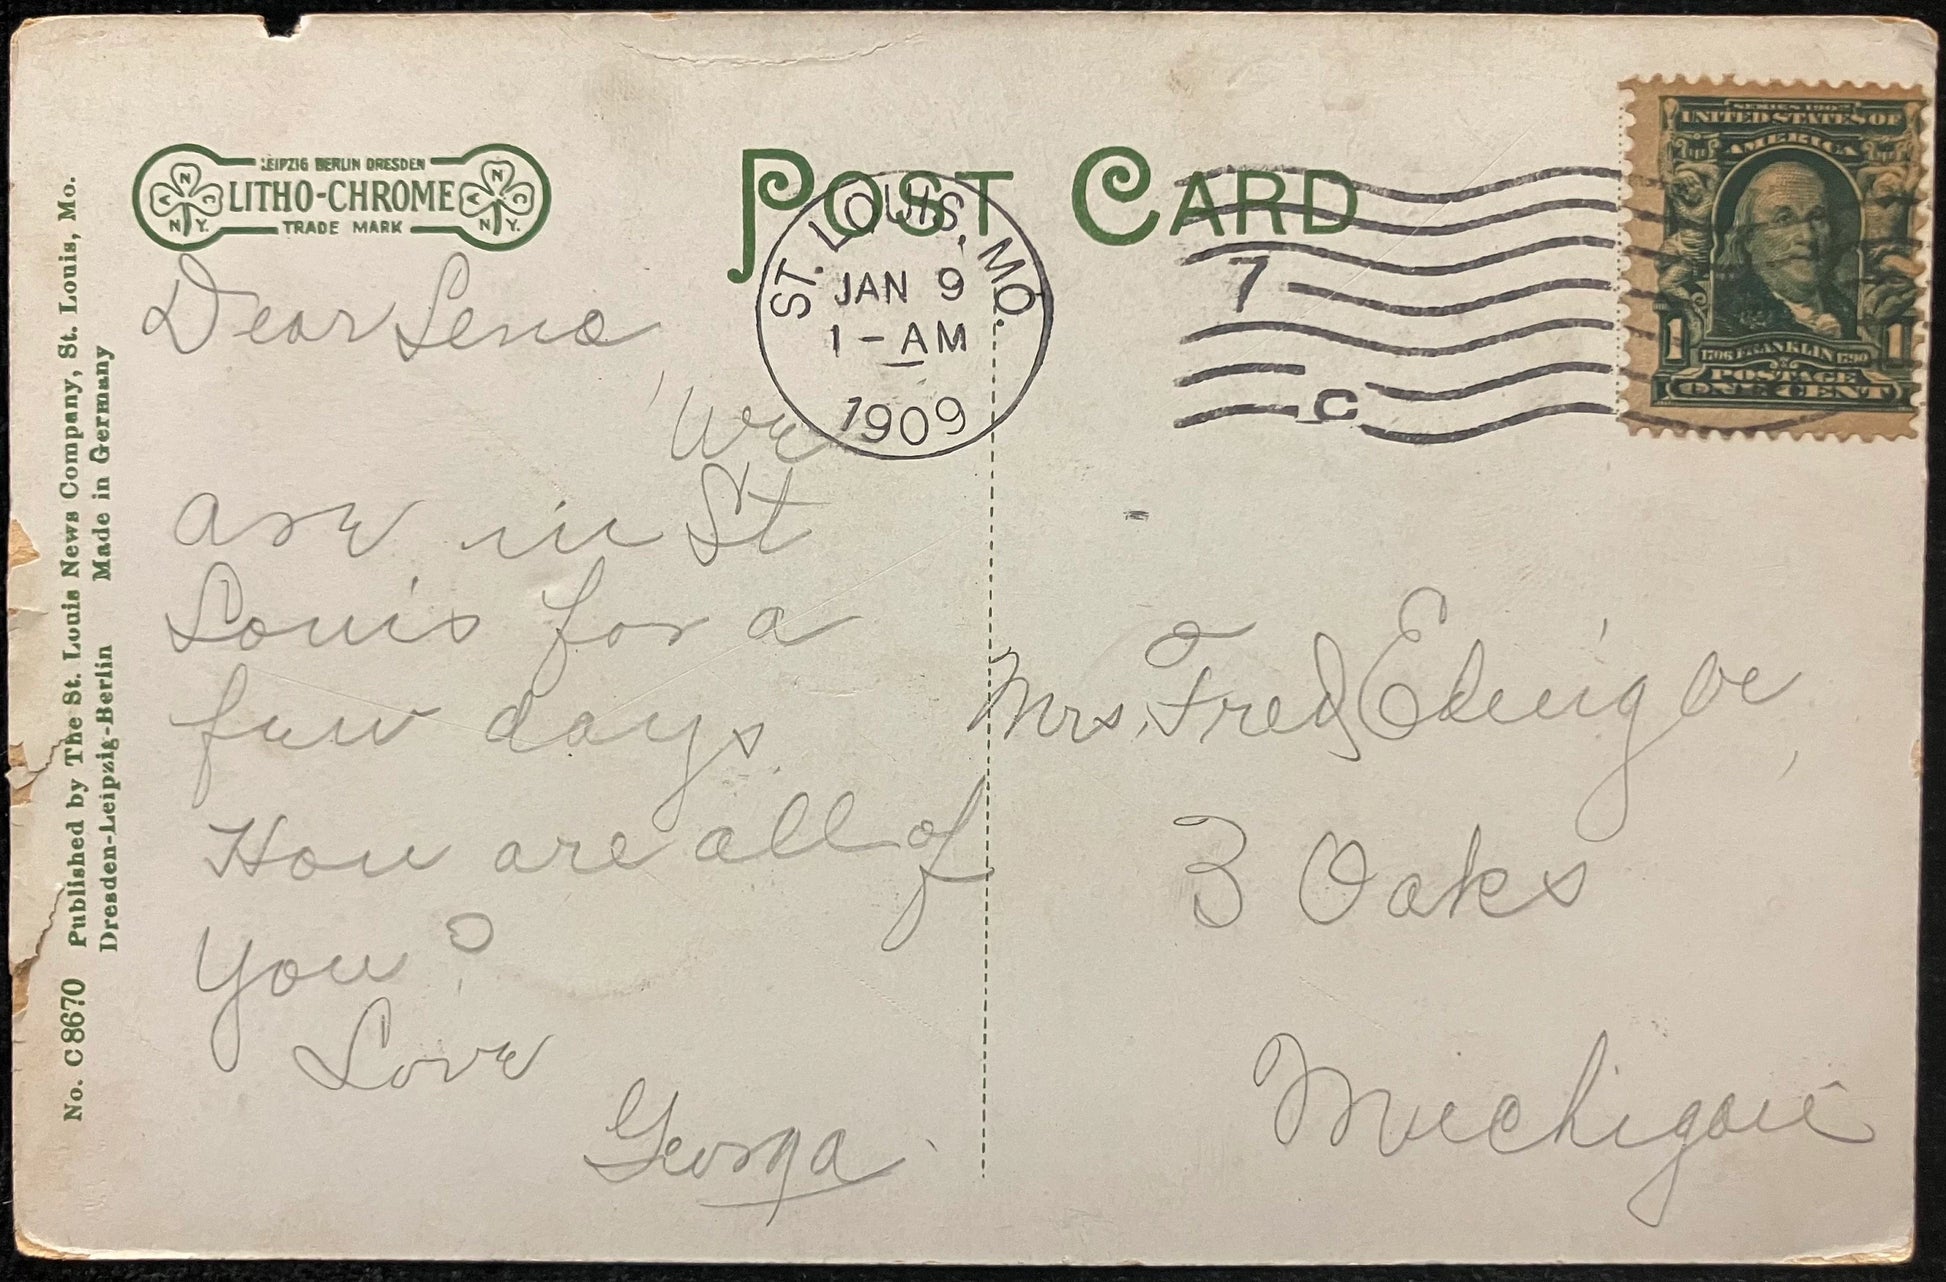 LEIPZIG BERLIN DRESDEN
LITHO-CHROME
TRADE MARK
A N C
N.Y.
A N C
N.Y.
POST CARD
ST. LOUIS, MO.
JAN 9
1-AM
1909
7
C
SERIES 1902
UNITED STATES OF
AMERICA
1 1
1706 FRANKLIN 1790
POSTAGE
ONE CENT
No. C 8670 Published by The St. Louis News Company, St. Louis, Mo.
Dresden-Leipzig-Berlin Made in Germany
Dear Lena,
We
are in St
Louis for a
few days.
How are all of
you?
Love
Georga
Mrs. Fred
3 Oaks
Michigan